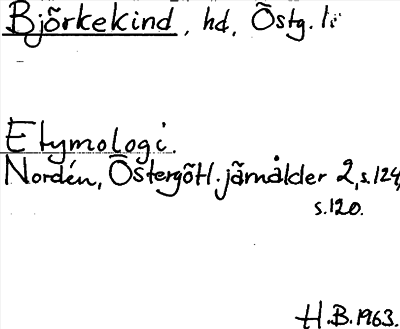 Björkekind, hd, Östg. lä
Etymologi.
Nordén, Östergötl. järnålder 2, s.124,
s.120.
H.B. 1963.